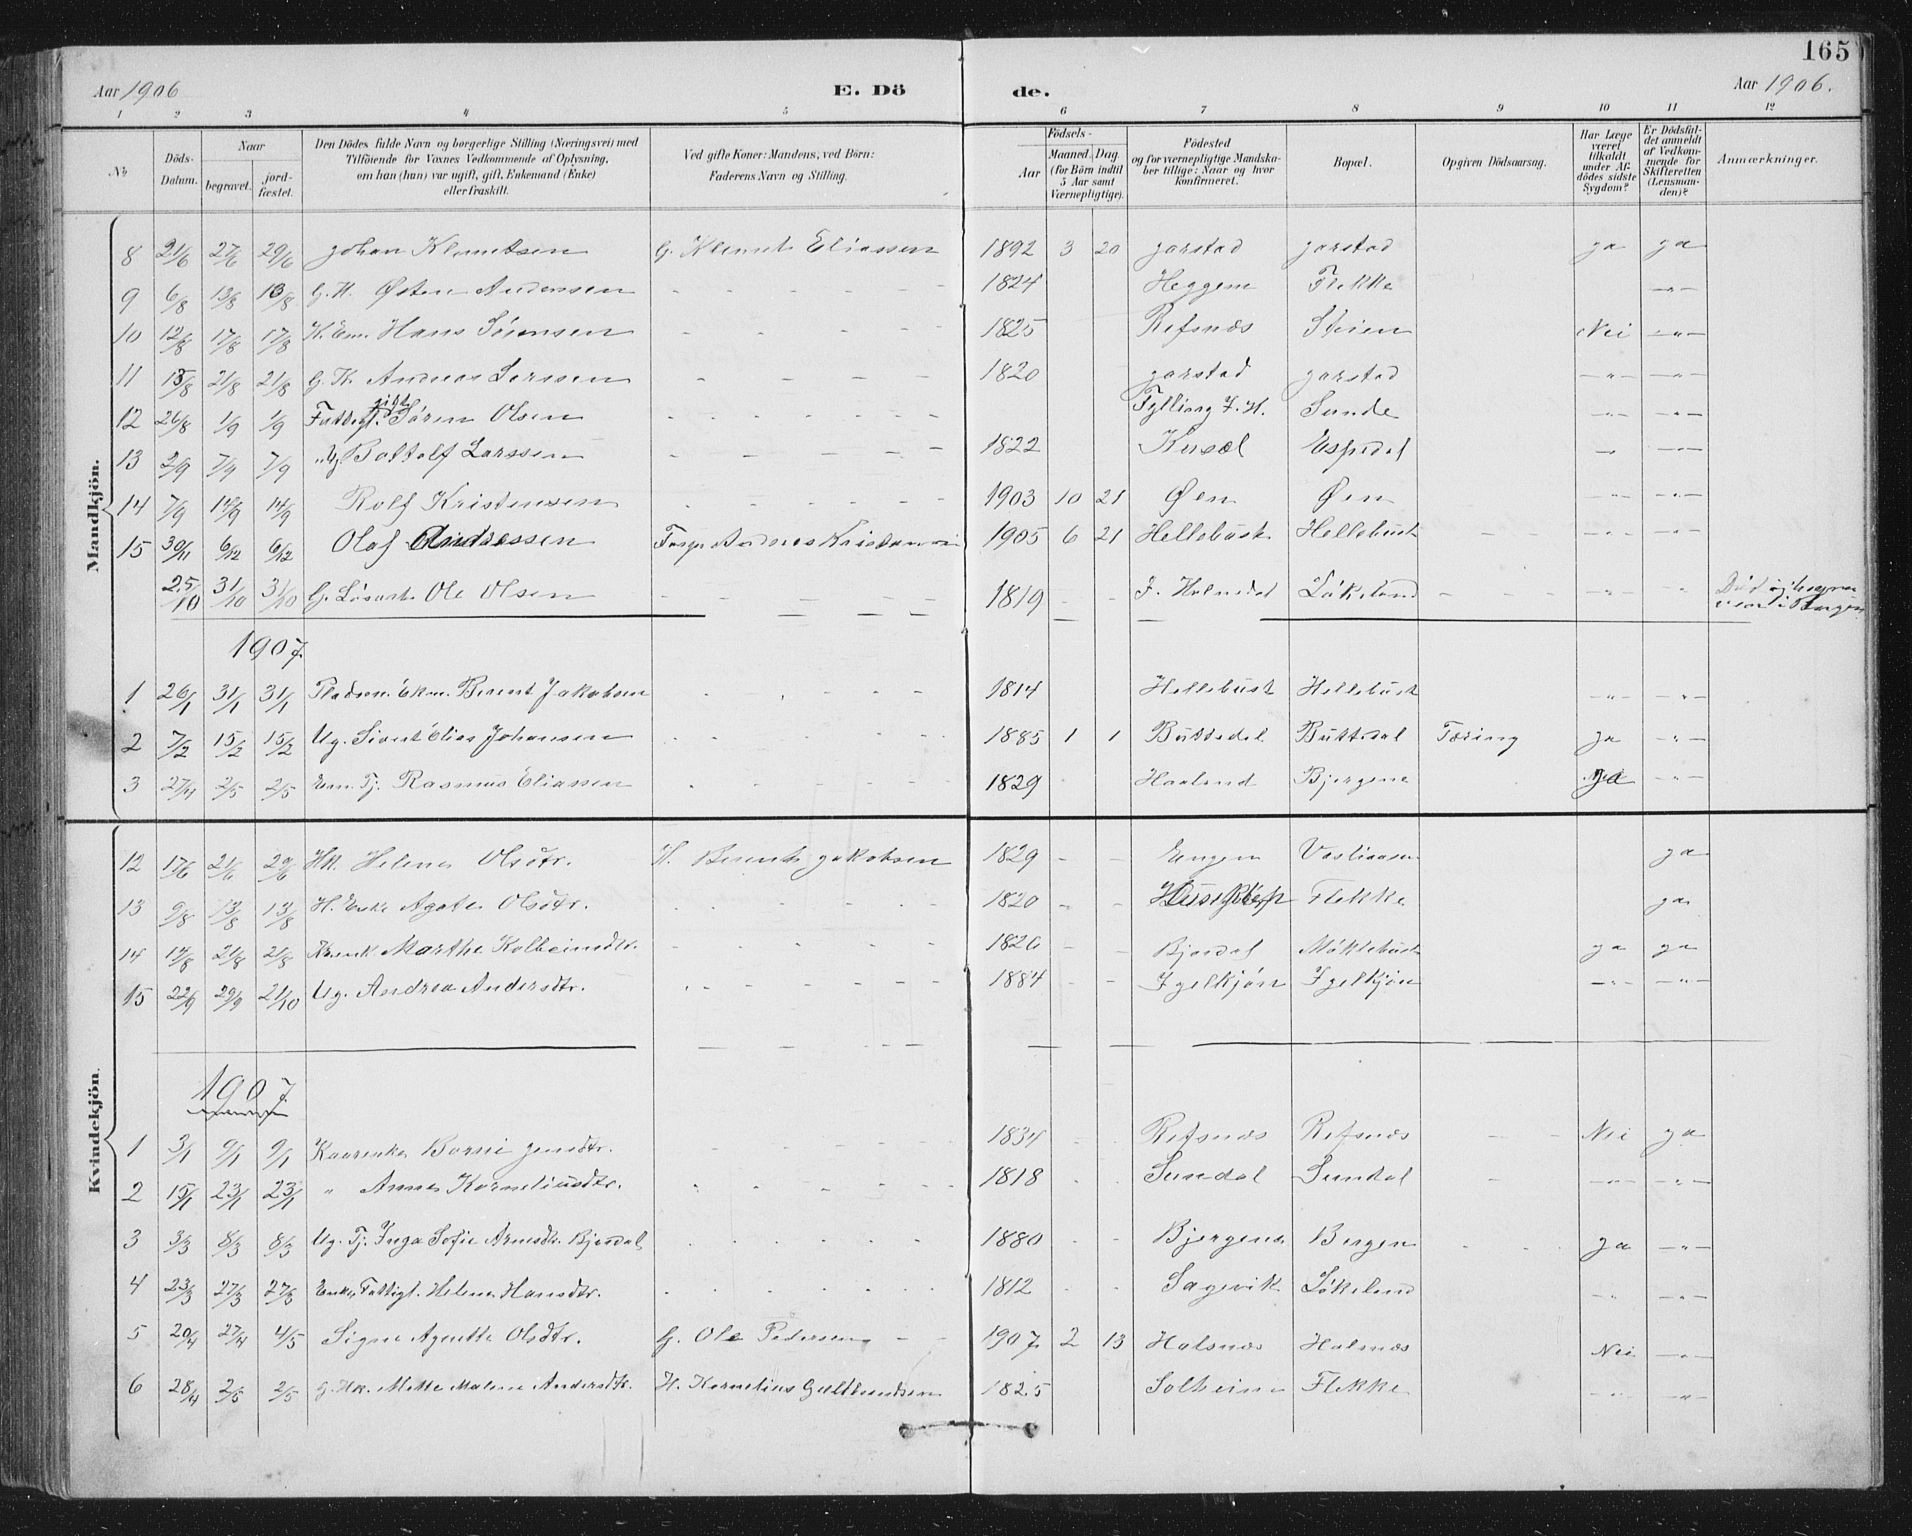 165
Aar 1906
E. Dö
de.
Aar 1906.
1 2 3 4 5 6 7 8 9 10 11 12
No
Döds-Datum.
Naar
begravet.
jord-fæstet.
Den Dödes fulde Navn og borgerlige Stilling (Næringsvei) med
Tilföiende for Voxnes Vedkommende af Oplysning,
om han (hun) var ugift, gift, Enkemand (Enke)
eller fraskilt.
Ved gifte Koner: Mandens, ved Börn:
Faderens Navn og Stilling.
Födsels-
Aar
Maaned. Dag.
(for Börn indtil
5 Aar samt
Værnepligtige).
Födested
og for værnepligtige Mandska-
ber tillige: Naar og hvor
konfirmeret.
Bopæl.
Opgiven Dödsaarsag.
Har Læge
været
tilkaldt
under Af-
dödes sidste
Sygdom?
Er Dödsfal-
det anmeldt
af Vedkom-
mende for
Skifteretten
(Lensman-
den)?
Anmærkninger.
Mandkjön.
8 21/6 27/6 29/6 Johan Klemetsen G. Klemet Eliassen 1892 3 20 Jarstad Jarstad ja ja
9 6/8 13/8 13/8 G. K. Østen Andersen - - - 1824 Heggene Flekke -"-
10 12/8 17/8 17/8 K. Em. Hans Sörensen - - - 1825 Refsnæs Steien Nei -"-
11 13/8 21/8 21/8 G. K. Andreas Larssen - - - 1820 Jarstad Jarstad -"- -"-
12 26/8 1/9 1/9 Fattigl. gift Sören Olsen - - - Fylling Y. H. Sande -"- -"-
13 2/9 7/9 7/9 " Ug Bottolf Larssen - - - 1822 Espedal - -"-
14 7/9 14/9 14/9 Rolf Kristensen - - - 1903 10 21 Øen Øen -"- -"-
15 30/11 6/12 6/12 Olaf Andreassen Andreas Kristian 1905 6 21 Hellebust Hellebust - - -"- -"-
25/10 31/10 31/10 G. Lösark. Ole Olsen - - - 1819 - - Y. Holmedal Lökeland - - -"- " Död og begra-
1907.
1 26/1 31/1 31/1 Pladsm. Ekm. Berent Jakobsen - - - 1814 Hellebust Hellebust -"- -"-
2 7/2 15/2 15/2 Ug. Sivert Elias Johansen - - - 1885 1 1 Buttedal Buttedal Tæring ja -"-
3 27/4 2/5 2/5 Em. Tj. Rasmus Eliassen - - - 1829 Haaland Bjergene ja -"-
Kvindekjön.
12 17/6 21/6 29/6 HK. Helene Olsdtr. H. Berent Jakobsen 1829 - - Engen ja
13 9/8 13/8 13/8 H. Enke Agate Olsdtr. - - - 1820 - - Flekke ja
14 14/8 21/8 21/8 Marthe Kolbeinsdtr. - - - 1826 - Bjordal Möklebust ja ja
15 22/9 29/9 21/10 Ug. Andrea Andersdtr. - - - 1884 - - Igelkjön Igelkjön -"- -"-
1907.
1 3/1 9/1 9/1 Kaarenke Borni Jensdtr. 1834 - - Refsnæs Refsnæs - - Nei ja
2 15/1 23/1 23/1 " Anne Korneliusdtr. - - - 1818 - - Sundal Sundal - -"- -"-
3 3/3 8/3 8/3 Ug. Tj. Inga Sofie Arnesdtr. Bjordal - - - 1880 Bjergene Bergen - - ja -"-
4 23/3 27/3 27/3 Enke, Fattigl. Helene Hansdtr. - - - 1812 - - Sagevik Lökeland -"- -"-
5 20/4 27/4 4/5 Signe Agnette Olsdtr. G. Ole Pedersen - - 1907 2 13 Halsnæs Halsnæs Nei -"-
6 28/4 2/5 2/5 G. HK. Mette Malene Andersdtr. H. Kornelius Guldbrandsen 1825 Solheim Flekke -"- -"-